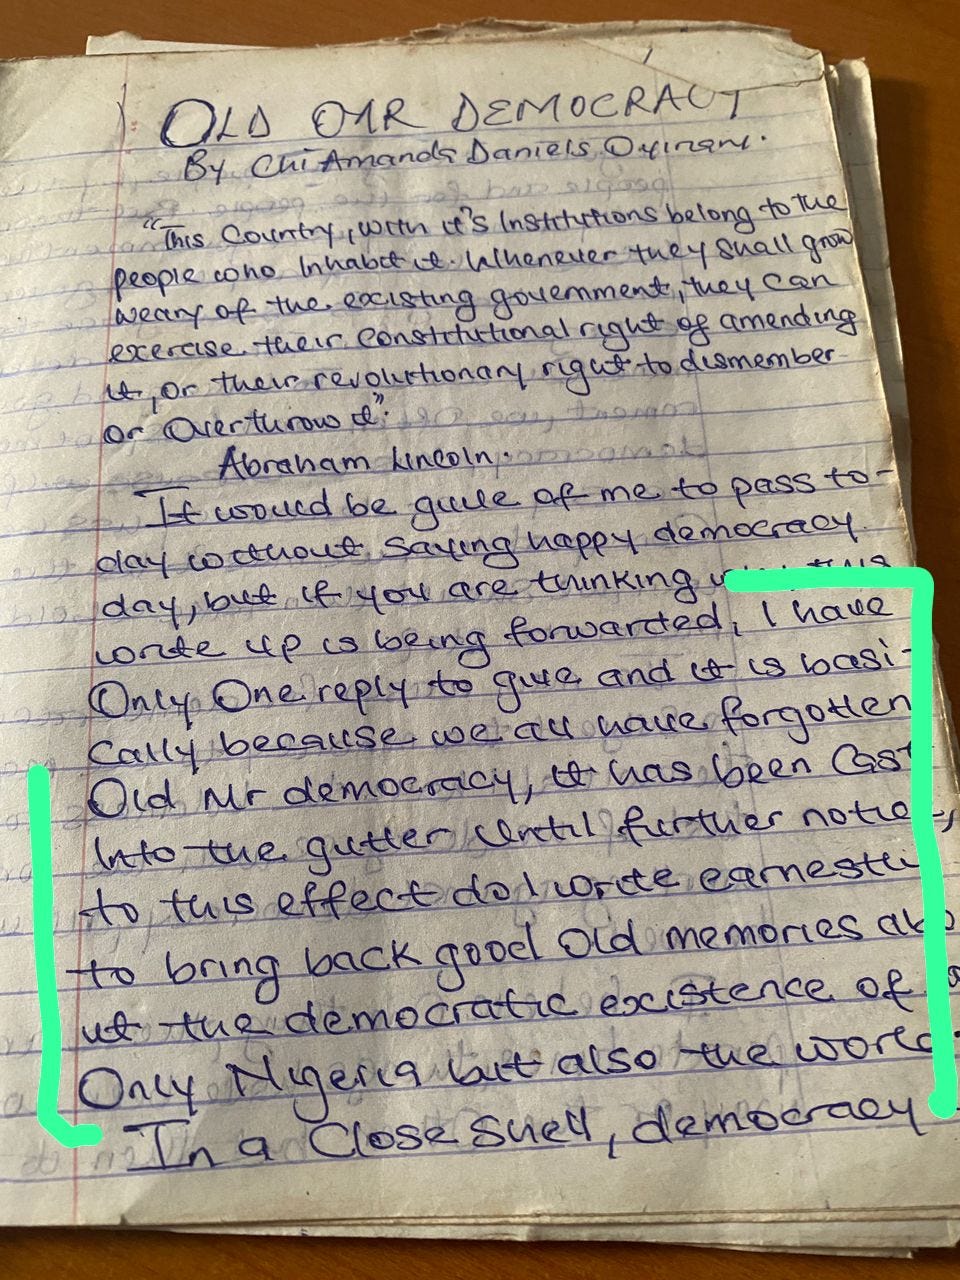 OLD OUR DEMOCRACY
By Chi Amanda Daniels Oyinani.
"This Country, with it's Institutions belong to the
people who Inhabit it. Whenever they shall grow
weary of the existing government, they can
exercise their Constitutional right of amending
it, or their revolutionary right to dismember
or Overthrow it".
Abraham Lincoln.
It would be guile of me to pass to-
day without saying happy democracy
day, but if you are thinking this
write up is being forwarded, I have
Only One reply to give and it is basi-
Cally because we all have forgotten
Old Mr democracy, it has been Cast
Into the gutter Until further notice,
to this effect do I write earnestl
to bring back good Old memories abo
ut the democratic existence of
Only Nigeria but also the world
In a Close shell, democracy